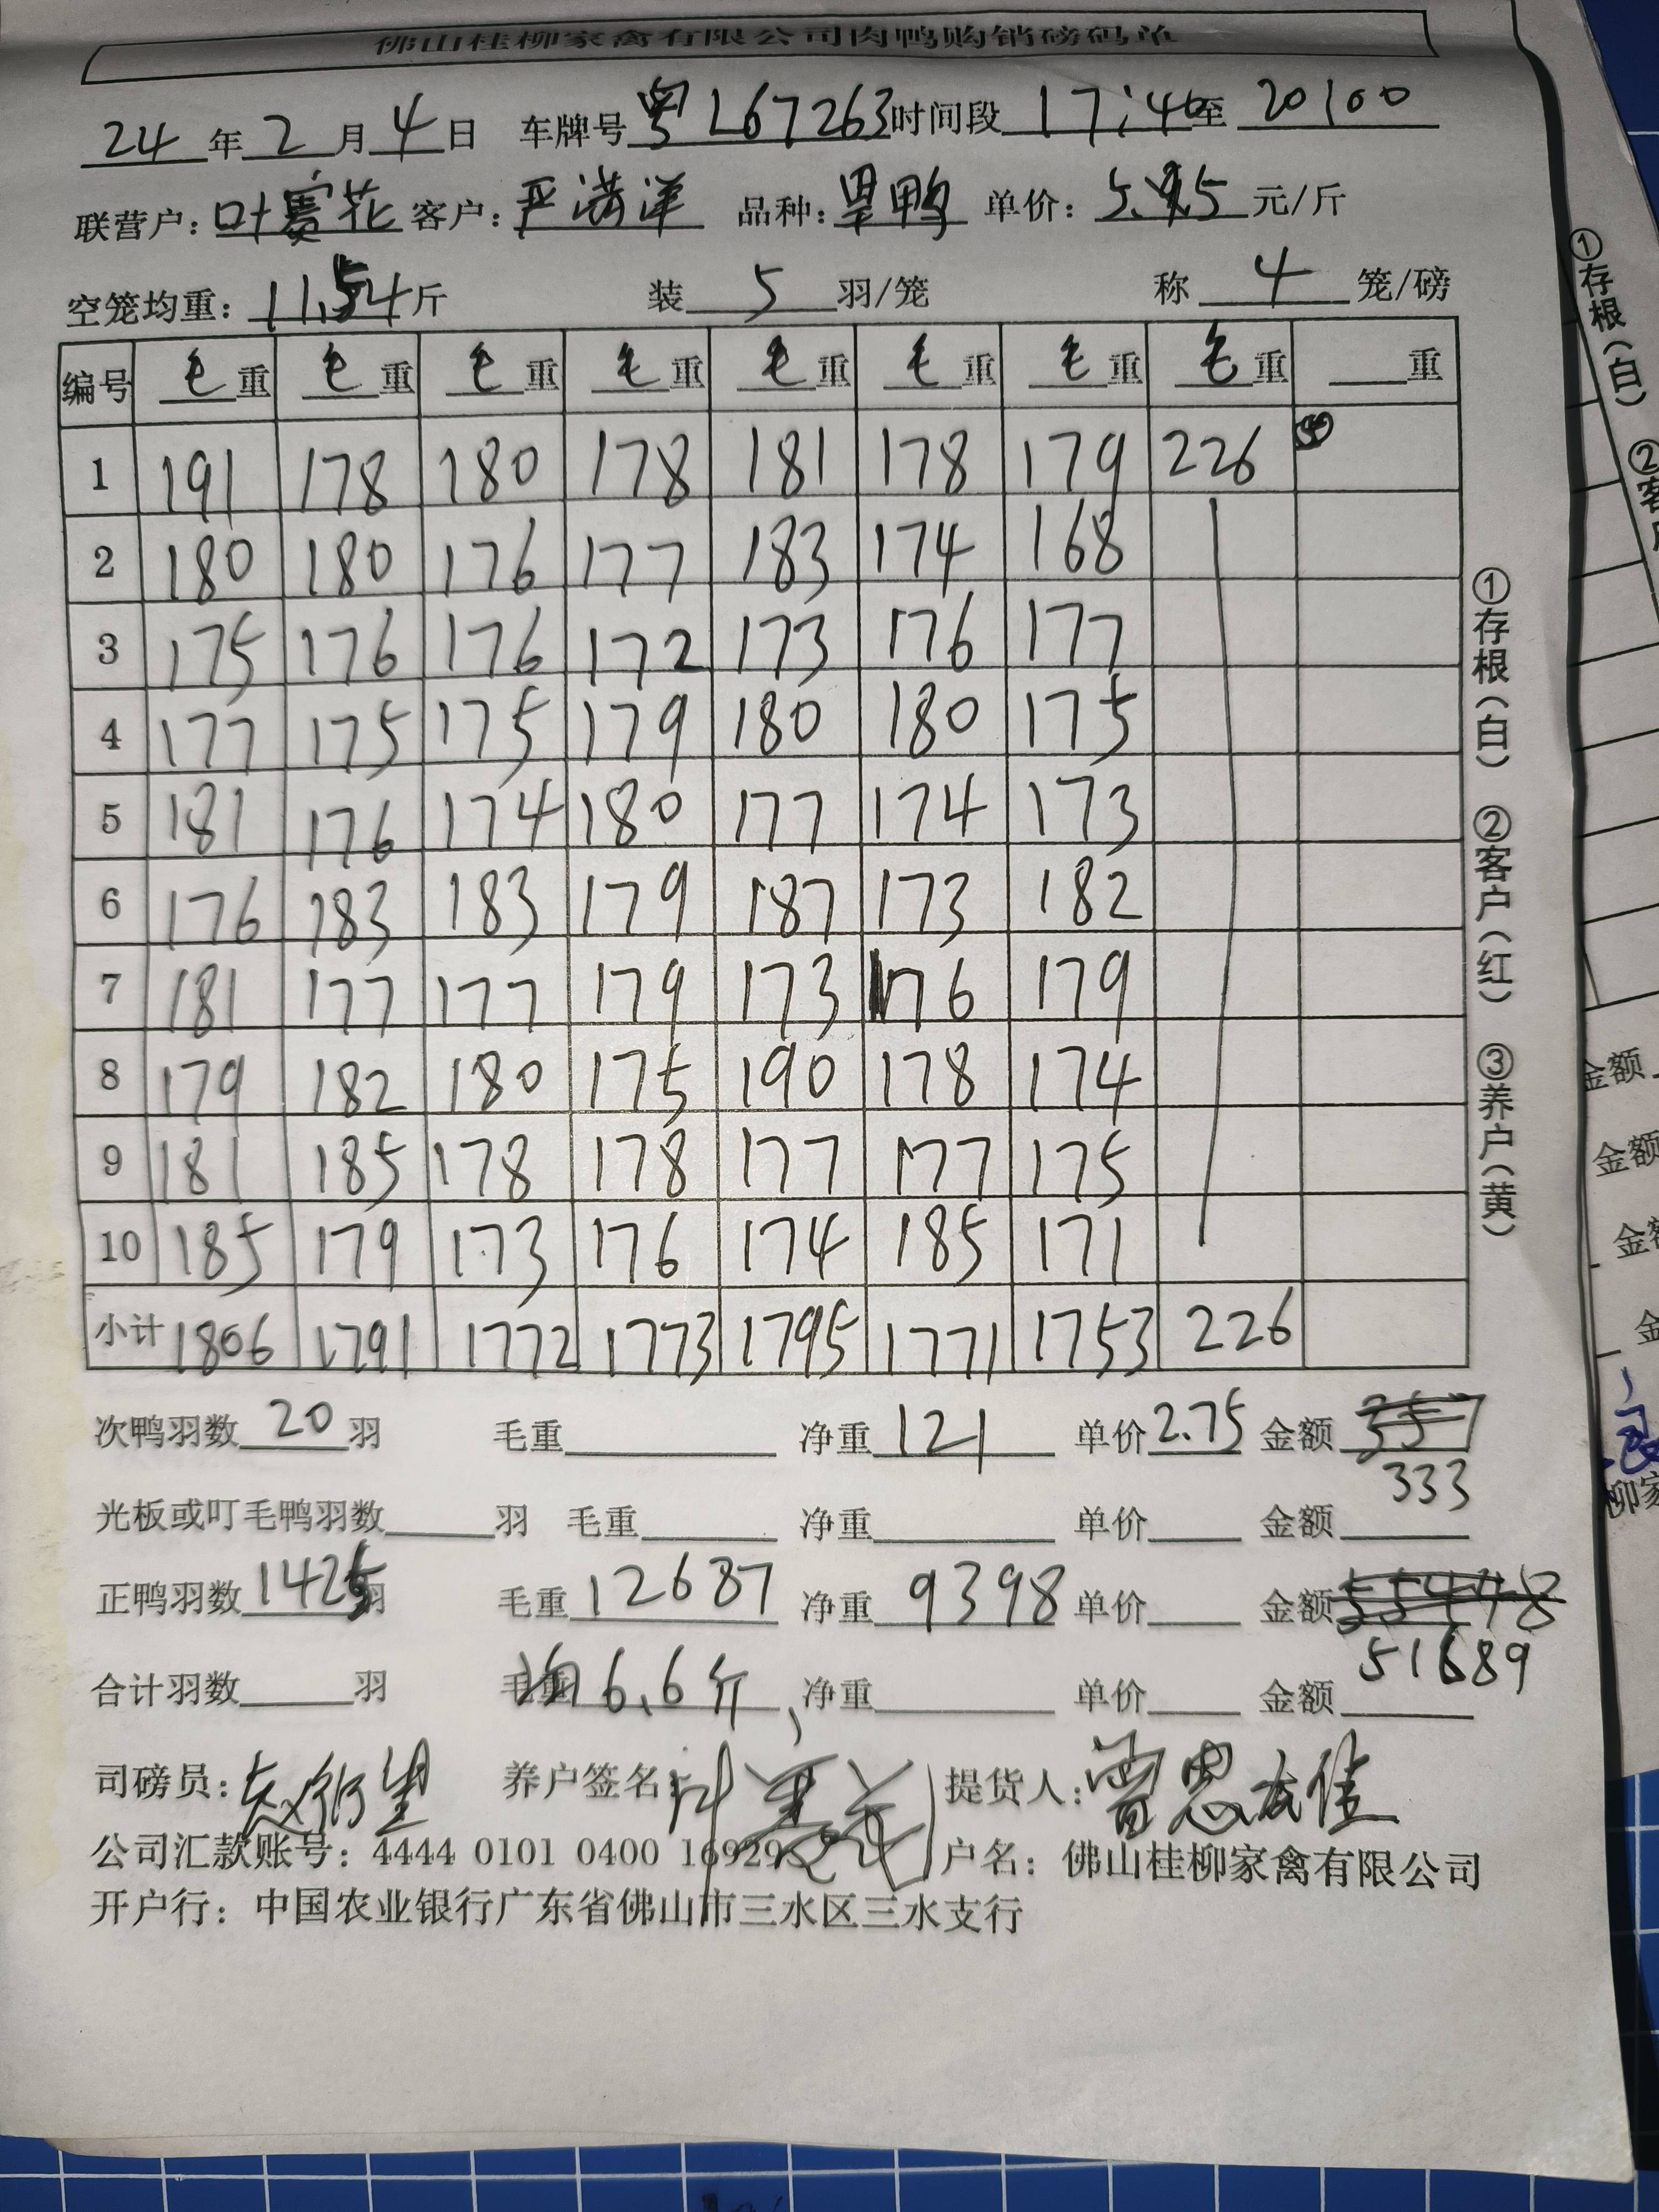 佛山桂柳家禽有限公司肉鸭购销磅码单
24 年 2 月 4 日 车牌号 粤L67263 时间段 17:40 至 20:00
联营户: 叶赛花 客户: 严满洋 品种: 旱鸭 单价: 元/斤
空笼均重: 11.54 斤 装 5 羽/笼 称 4 笼/磅
编号 毛重 毛重 毛重 毛重 毛重 毛重 毛重 毛重 重
1 191 178 180 178 181 178 179 226 50
2 180 180 176 177 183 174 168
3 175 176 176 172 173 176 177
4 177 175 175 179 180 180 175
5 181 176 174 180 177 174 173
6 176 183 183 179 187 173 182
7 181 177 177 179 173 176 179
8 179 182 180 175 190 178 174
9 181 185 178 178 177 177 175
10 185 179 173 176 174 185 171
小计 1806 1791 1772 1773 1795 1771 1753 226
次鸭羽数 20 羽 毛重 净重 121 单价 2.75 金额 357
333
光板或叮毛鸭羽数 羽 毛重 净重 单价 金额
正鸭羽数 1425 羽 毛重 12687 净重 9398 单价 金额 55448
51689
合计羽数 羽 毛重 均6.6斤 净重 单价 金额
司磅员: 养户签名: 叶赛花 提货人:
公司汇款账号: 4444 0101 0400 16929 户名: 佛山桂柳家禽有限公司
开户行: 中国农业银行广东省佛山市三水区三水支行
①存根(白) ②客户(红) ③养户(黄)
①存根(白) ②客
金额
金额
金额
金
柳家